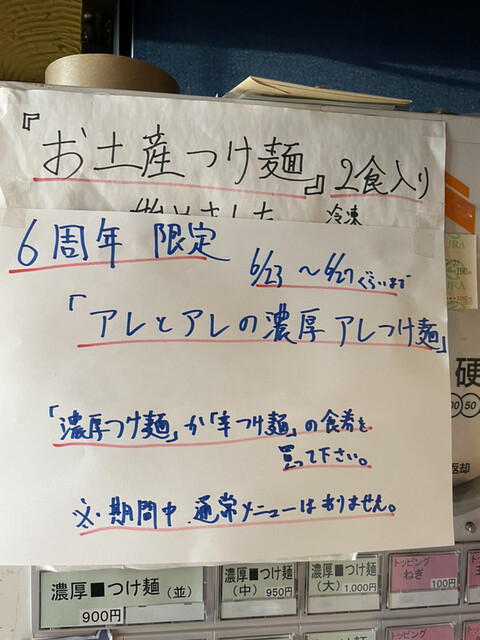 『お土産つけ麺』2食入り
始めました 冷凍
6周年 限定
6/23 〜 6/27ぐらいまで
「アレとアレの濃厚アレつけ麺」
「濃厚つけ麺」か「辛つけ麺」の食券を
買って下さい。
※・期間中、通常メニューはありません。
硬
50
返却
濃厚■つけ麺(並)
900円
濃厚■つけ麺
(中) 950円
濃厚■つけ麺
(大) 1,000円
トッピング
ねぎ
100円